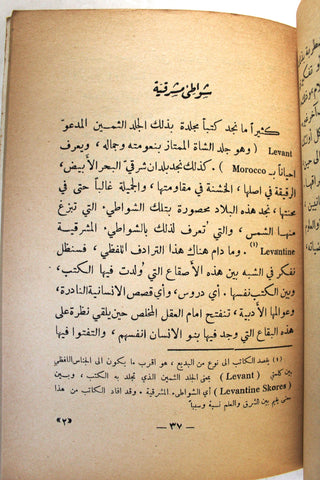 شواطئ مشرقية
كثيراً ما نجد كتباً مجلدة بذلك الجلد الثمين المدعوّ
Levant (وهو جلد الشاة الممتاز بنعومته وجماله، ويعرف
احياناً بـ Morocco). كذلك نجد بلدان شرقي البحر الأبيض،
الرقيقة في اصلها، الخشنة في مقاومتها، والجميلة غالباً حتى في
محنتها، نجد هذه البلاد محصورة بتلك الشواطئ. التي تبزغ
منها الشمس، والتي تعرف لذلك بالشواطئ. المشرقية
Levantine (١). وما دام هناك هذا الترادف اللفظي، فسنظل
نفكر في الشبه بين هذه الأصقاع التي وُلدت فيها الكتب،
وبين الكتب نفسها. أي دروس، وأي قصص الانسانية النادرة،
وعوالمها الأدبية، تنفتح امام العقل المخلص حين يلقي نظرة على
هذه البقاع التي وجد فيها بنو الانسان انفسهم، والتفتوا فيها
(١) يقصد الكاتب الى نوع من البديع، هو اقرب ما يكون الى الجناس اللفظي
بين كلمتي (Levant) بمعنى الجلد الثمين الذي تجلد به الكتب، وبين
(Levantine Skores) أي الشواطئ. المشرقية. وقد افاد الكاتب من هذا
معنى يقيم بين الشرق والعلم نسبة وسبباً
— ٣٧ —
«٢»